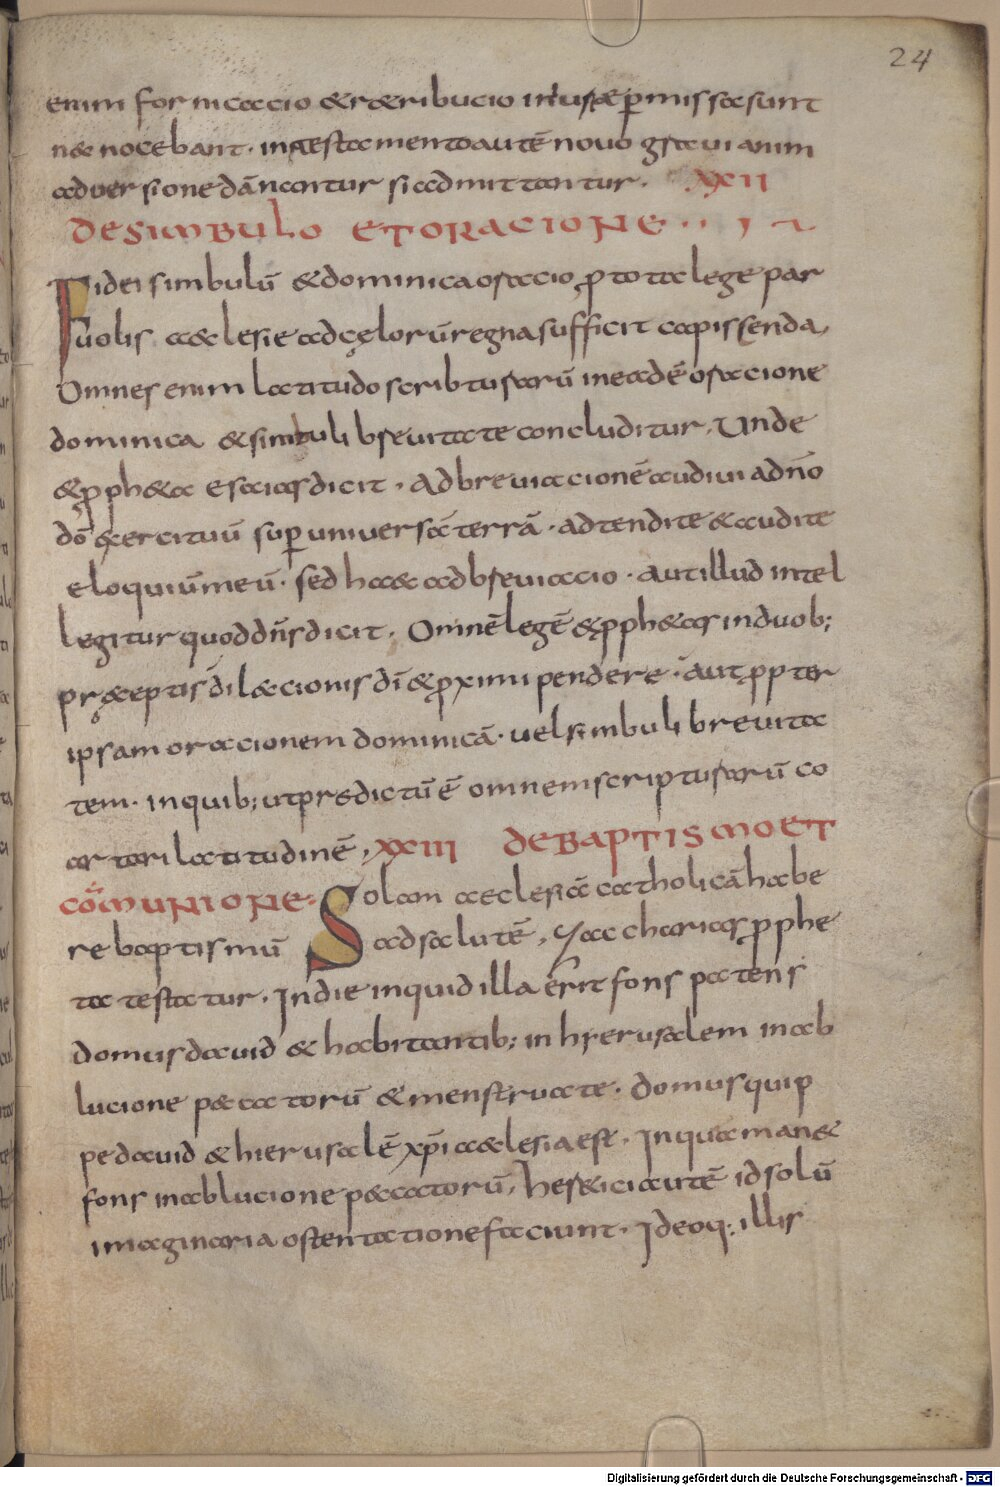 24
enim fornicacio & r&ribucio in uet& p̱missa sunt
n&c nocebant. in testamento autē novo graui anim
adversione dānantur si admittantur. XXII
DE SIMBULO ET ORACIONE
Fidei simbulū & dominica oracio ꝓ tota lege par
uolis aeclesie ad cęlorū regna sufficit capissenda,
Omnes enim latitudo scribturarū in eadē oracione
dominica & simbuli breuitate concluditur. Unde
& ꝓph&a esaias dicit. Adbreviacionē audivi a dn̄o
dō exercituū sup̱ universā terrā. adtendite & audite
eloquiū meū. sed haec adbreuiacio. aut illud intel
legitur quod dn̄s dicit. Omnē legē & ꝓph&as in duob;
pręceptis dilectionis dī & ꝓximi pendere. aut ꝓpter
ipsam oracionem dominicā. uel simbuli brevita
tem. in quib; ut pre dictū ē omnem scripturarū co
artari latitudinē. XXIII DE BAPTISMO ET
CŌMUNIONE Solam aeclesiā catholicā habe
re baptismū ad salutē, Zaccharias ꝓphe
ta testatur. In die inquid illa erit fons patens
domui dauid & habitantib; in hierusalem in ab
lucione peccatorū & menstruate. domus quip
pe dauid & hierusalē xp̄i aeclesia est. In qua man&
fons in ablucione peccatorū, her&ici autē id solū
imaginaria ostentatione faciunt. Ideoq; illis
Digitalisierung gefördert durch die Deutsche Forschungsgemeinschaft - DFG